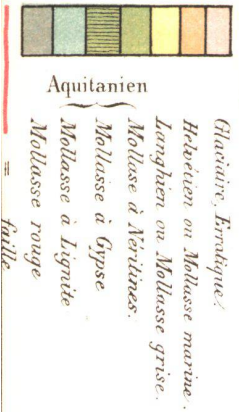 Aquitanien
Glaciaire, Erratique
Helvétien ou Mollasse marine.
Langhien ou Mollasse grise.
Mollasse à Néritines.
Mollasse à Gypse
Mollasse à Lignite
Mollasse rouge
= faille